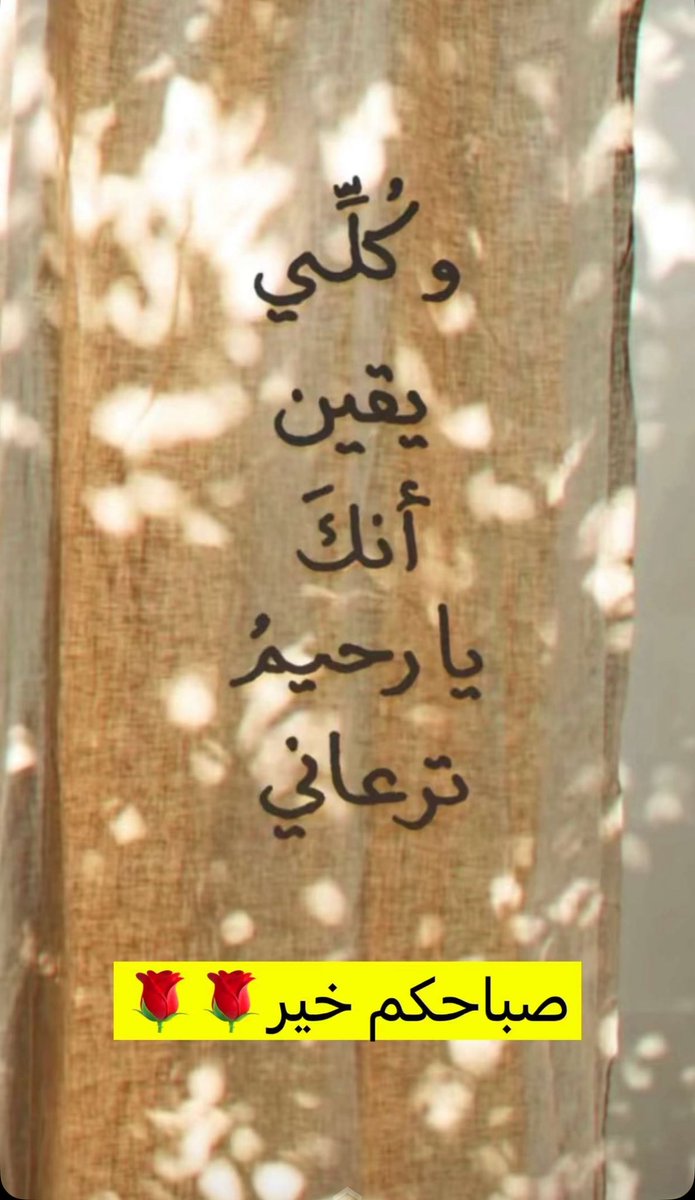 و كُلِّي
يقين
أنكَ
يا رحيمُ
ترعاني
صباحكم خير🌹🌹